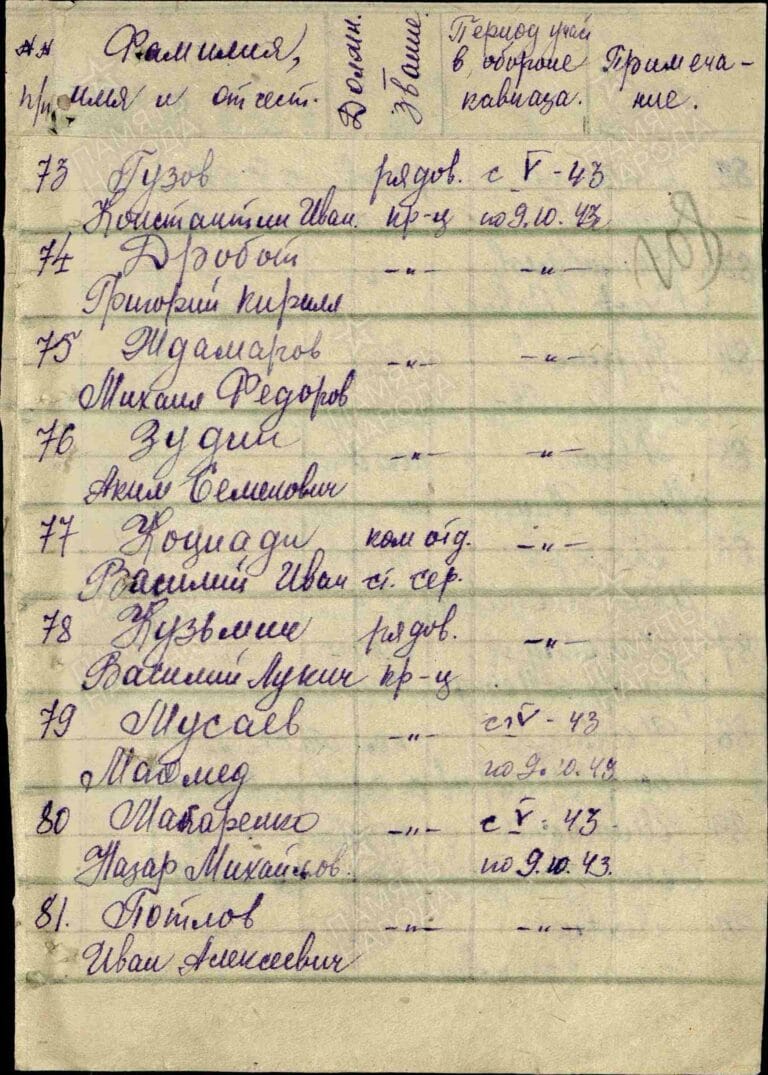 №№ Фамилия, Должн. звание Период учас в обороне Примеча-
п/п имя и отчест. кавказа. ние.
73 Гузов рядов. с V - 43
Константин Иван. кр-ц по 9.10. 43
74 Дробот -"- -"-
Григорий Кирилл
75 Ждамаров -"- -"-
Михаил Федоров
76 Зудин -"- -"-
Аким Семенович
77 Коциади ком отд. -"-
Василий Иван ст. сер.
78 Кузьмин рядов. -"-
Василий Лукич кр-ц
79 Мусаев -"- с V - 43
Маомед по 9.10.43
80 Макаренко -"- с V - 43
Назар Михайлов. по 9.10.43.
81. Потлов -"- -"-
Иван Алексеевич
ПАМЯТЬ НАРОДА